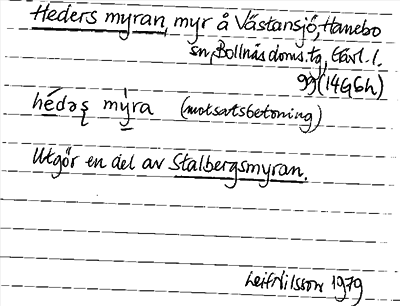 Heders myran, myr å Västansjö, Hanebo
sn, Bollnäs doms. tg, Gävl. l.
99(14G6h)
hédəʂ mýra (motsatsbetoning)
Utgör en del av Stalbergsmyran.
Leif Nilsson 1979